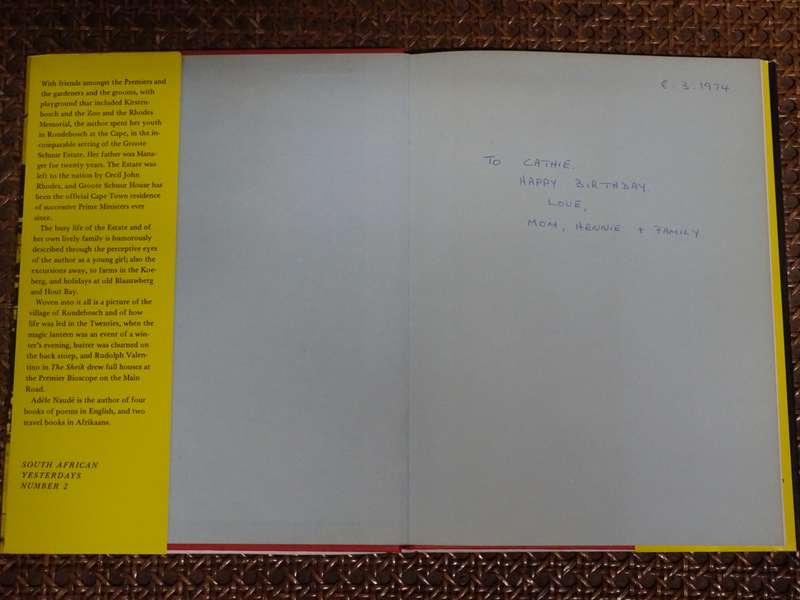 With friends amongst the Premiers and
the gardeners and the grooms, with
playground that included Kirsten-
bosch and the Zoo and the Rhodes
Memorial, the author spent her youth
in Rondebosch at the Cape, in the in-
comparable setting of the Groote
Schuur Estate. Her father was Mana-
ger for twenty years. The Estate was
left to the nation by Cecil John
Rhodes, and Groote Schuur House has
been the official Cape Town residence
of successive Prime Ministers ever
since.
The busy life of the Estate and of
her own lively family is humorously
described through the perceptive eyes
of the author as a young girl; also the
excursions away, to farms in the Koe-
berg, and holidays at old Blaauwberg
and Hout Bay.
Woven into it all is a picture of the
village of Rondebosch and of how
life was led in the Twenties, when the
magic lantern was an event of a win-
ter's evening, butter was churned on
the back stoep, and Rudolph Valen-
tino in The Sheik drew full houses at
the Premier Bioscope on the Main
Road.
Adèle Naudé is the author of four
books of poems in English, and two
travel books in Afrikaans.
SOUTH AFRICAN
YESTERDAYS
NUMBER 2
8.3.1974
TO CATHIE.
HAPPY BIRTHDAY.
LOVE,
MOM, HENNIE + FAMILY